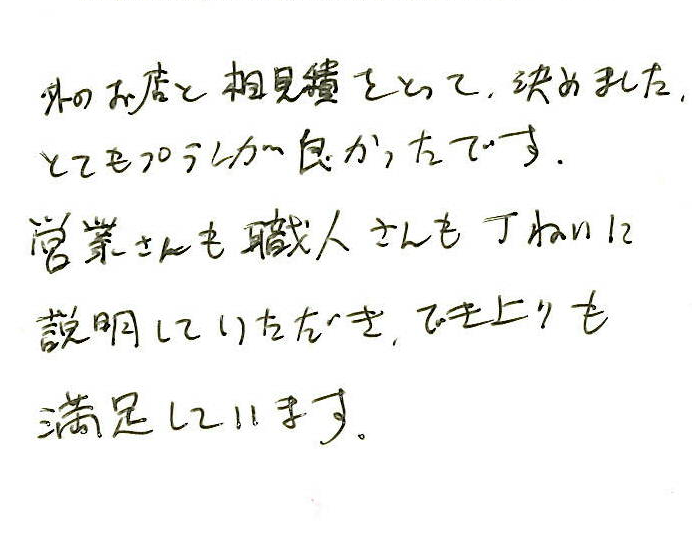 外のお店と相見積をとって、決めました。
とてもプランが良かったです。
営業さんも職人さんも丁ねいに
説明していただき、でき上りも
満足しています。